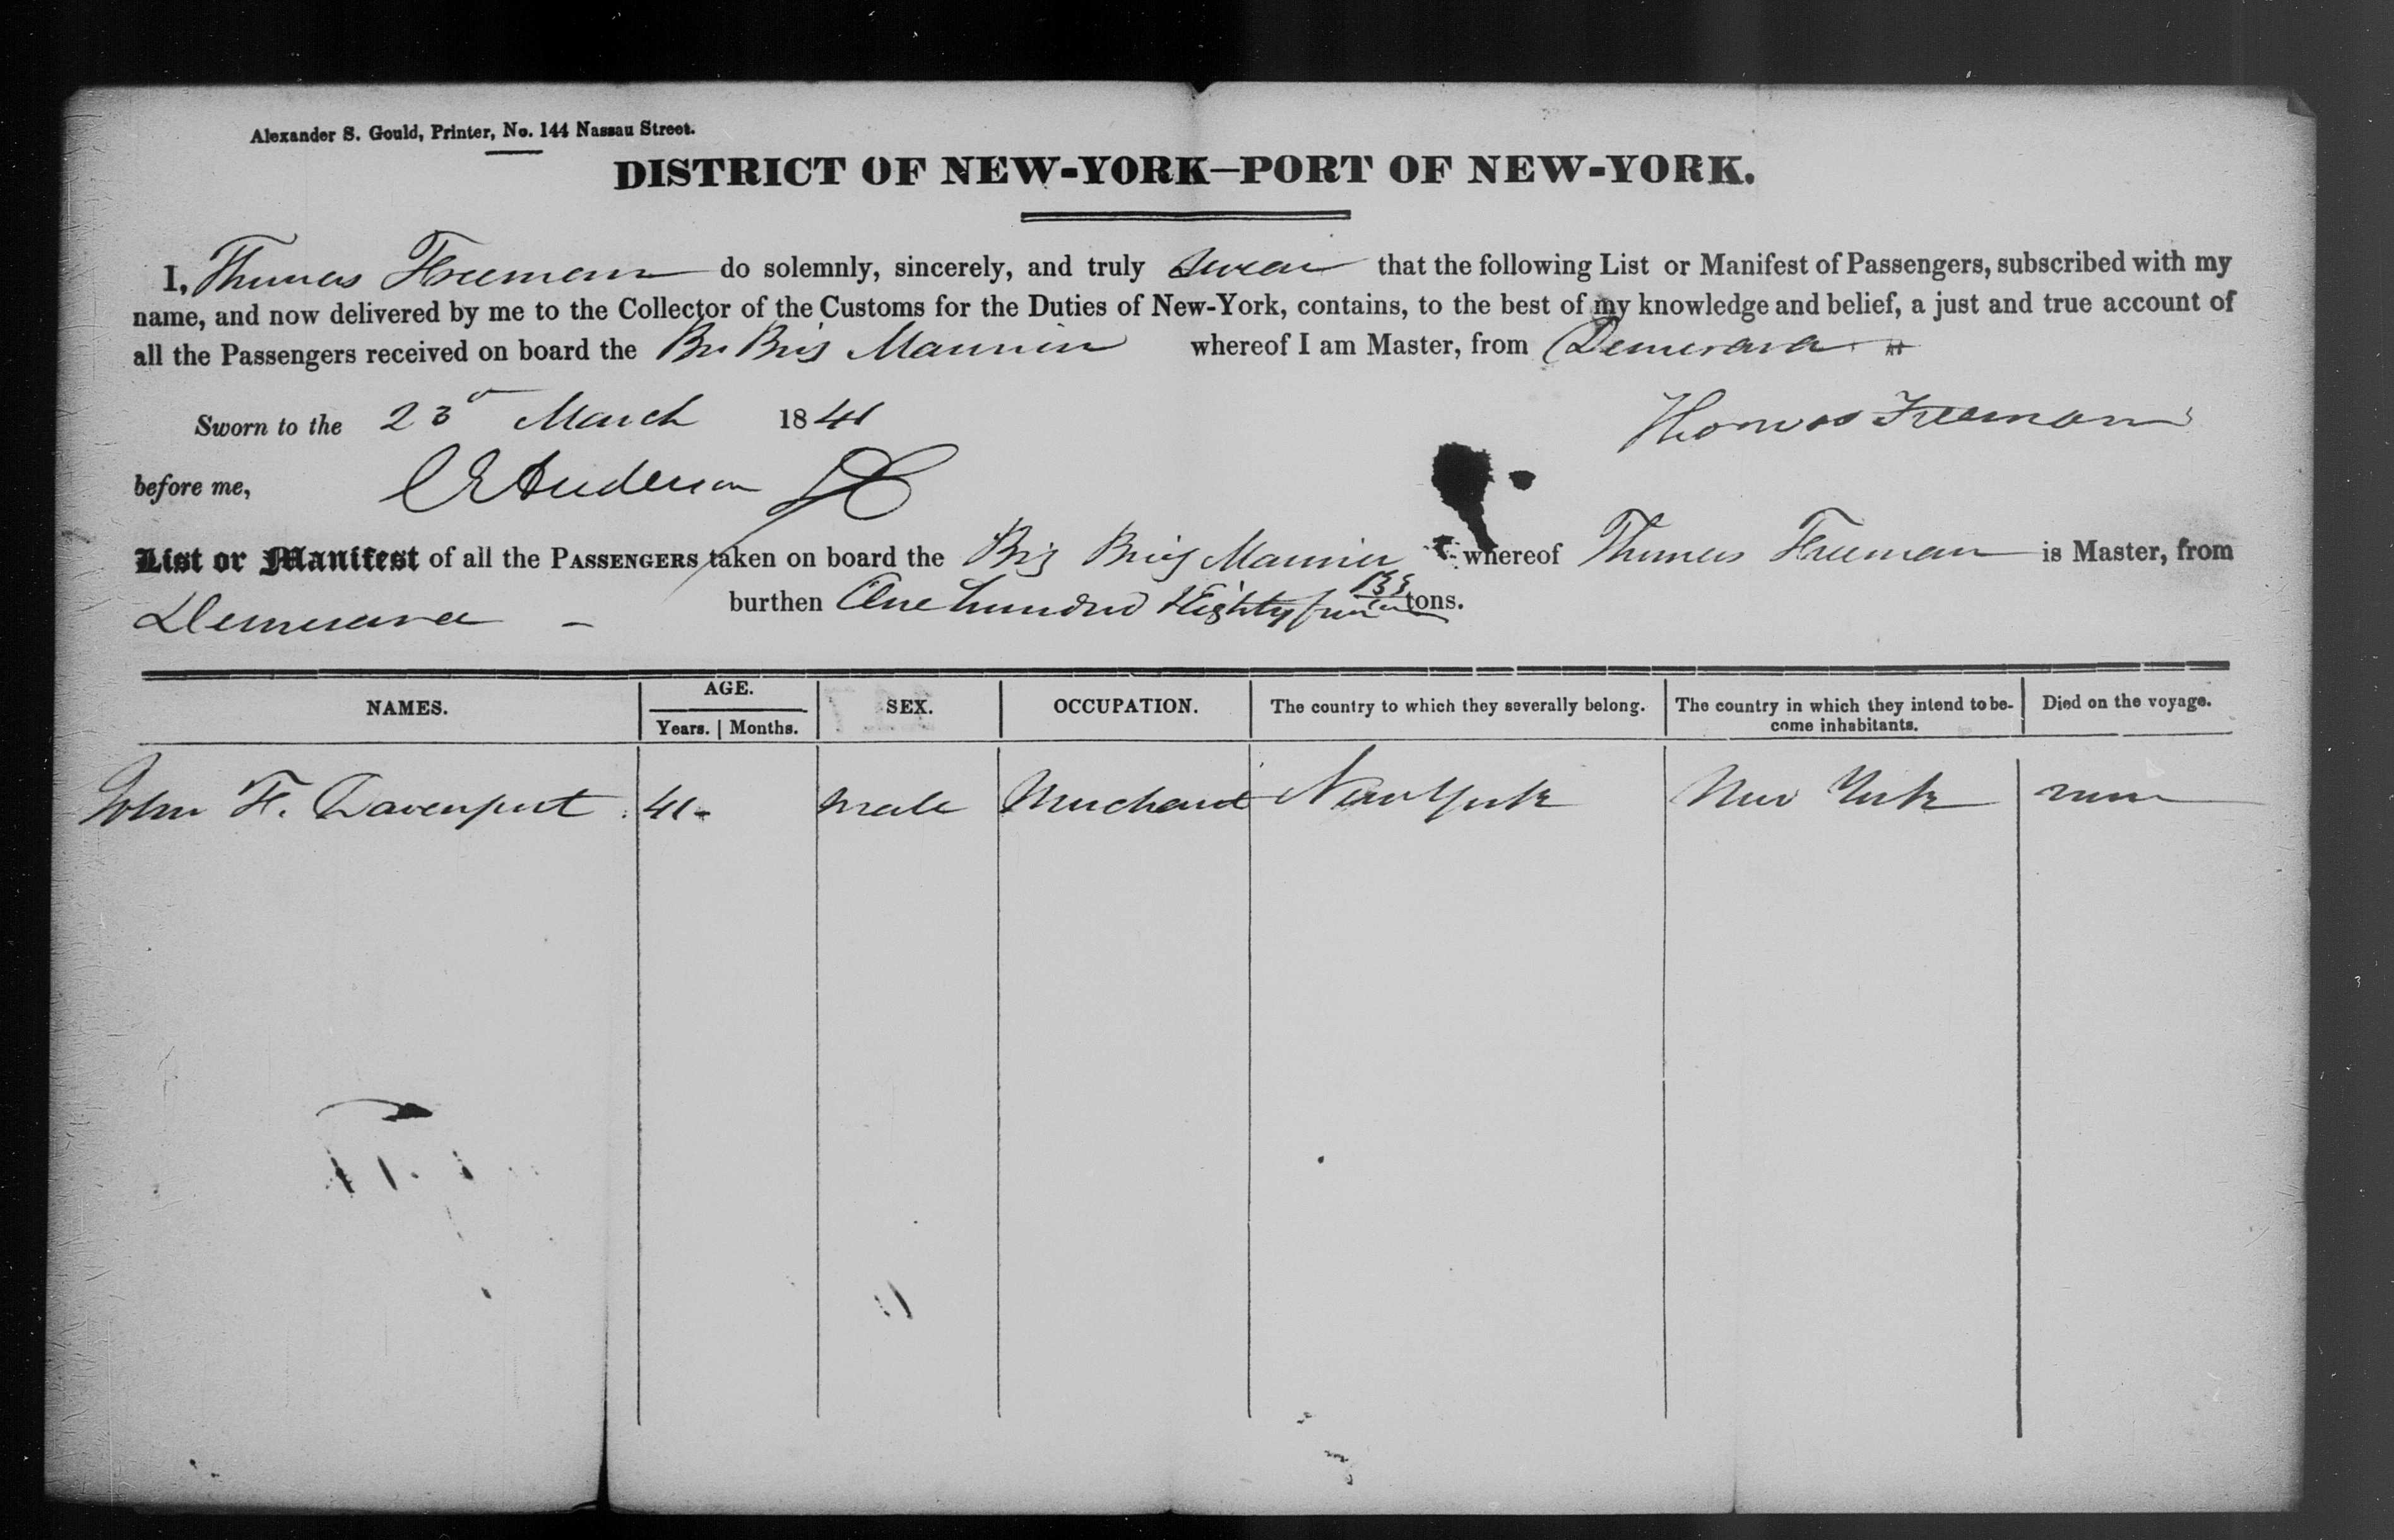 Alexander S. Gould, Printer, No. 144 Nassau Street.
DISTRICT OF NEW-YORK—PORT OF NEW-YORK.
I, Thomas Freeman do solemnly, sincerely, and truly swear that the following List or Manifest of Passengers, subscribed with my
name, and now delivered by me to the Collector of the Customs for the Duties of New-York, contains, to the best of my knowledge and belief, a just and true account of
all the Passengers received on board the Br Brig whereof I am Master, from Demerara
Sworn to the 23d March 1841 Thomas Freeman
before me, Anderson
List or Manifest of all the PASSENGERS taken on board the Brig whereof Thomas Freeman is Master, from
Demerara – burthen One hundred Eighty tons.
NAMES. AGE. Years. Months. SEX. OCCUPATION. The country to which they severally belong. The country in which they intend to become inhabitants. Died on the voyage.
John F. Davenport 41- male Merchant New York New York none